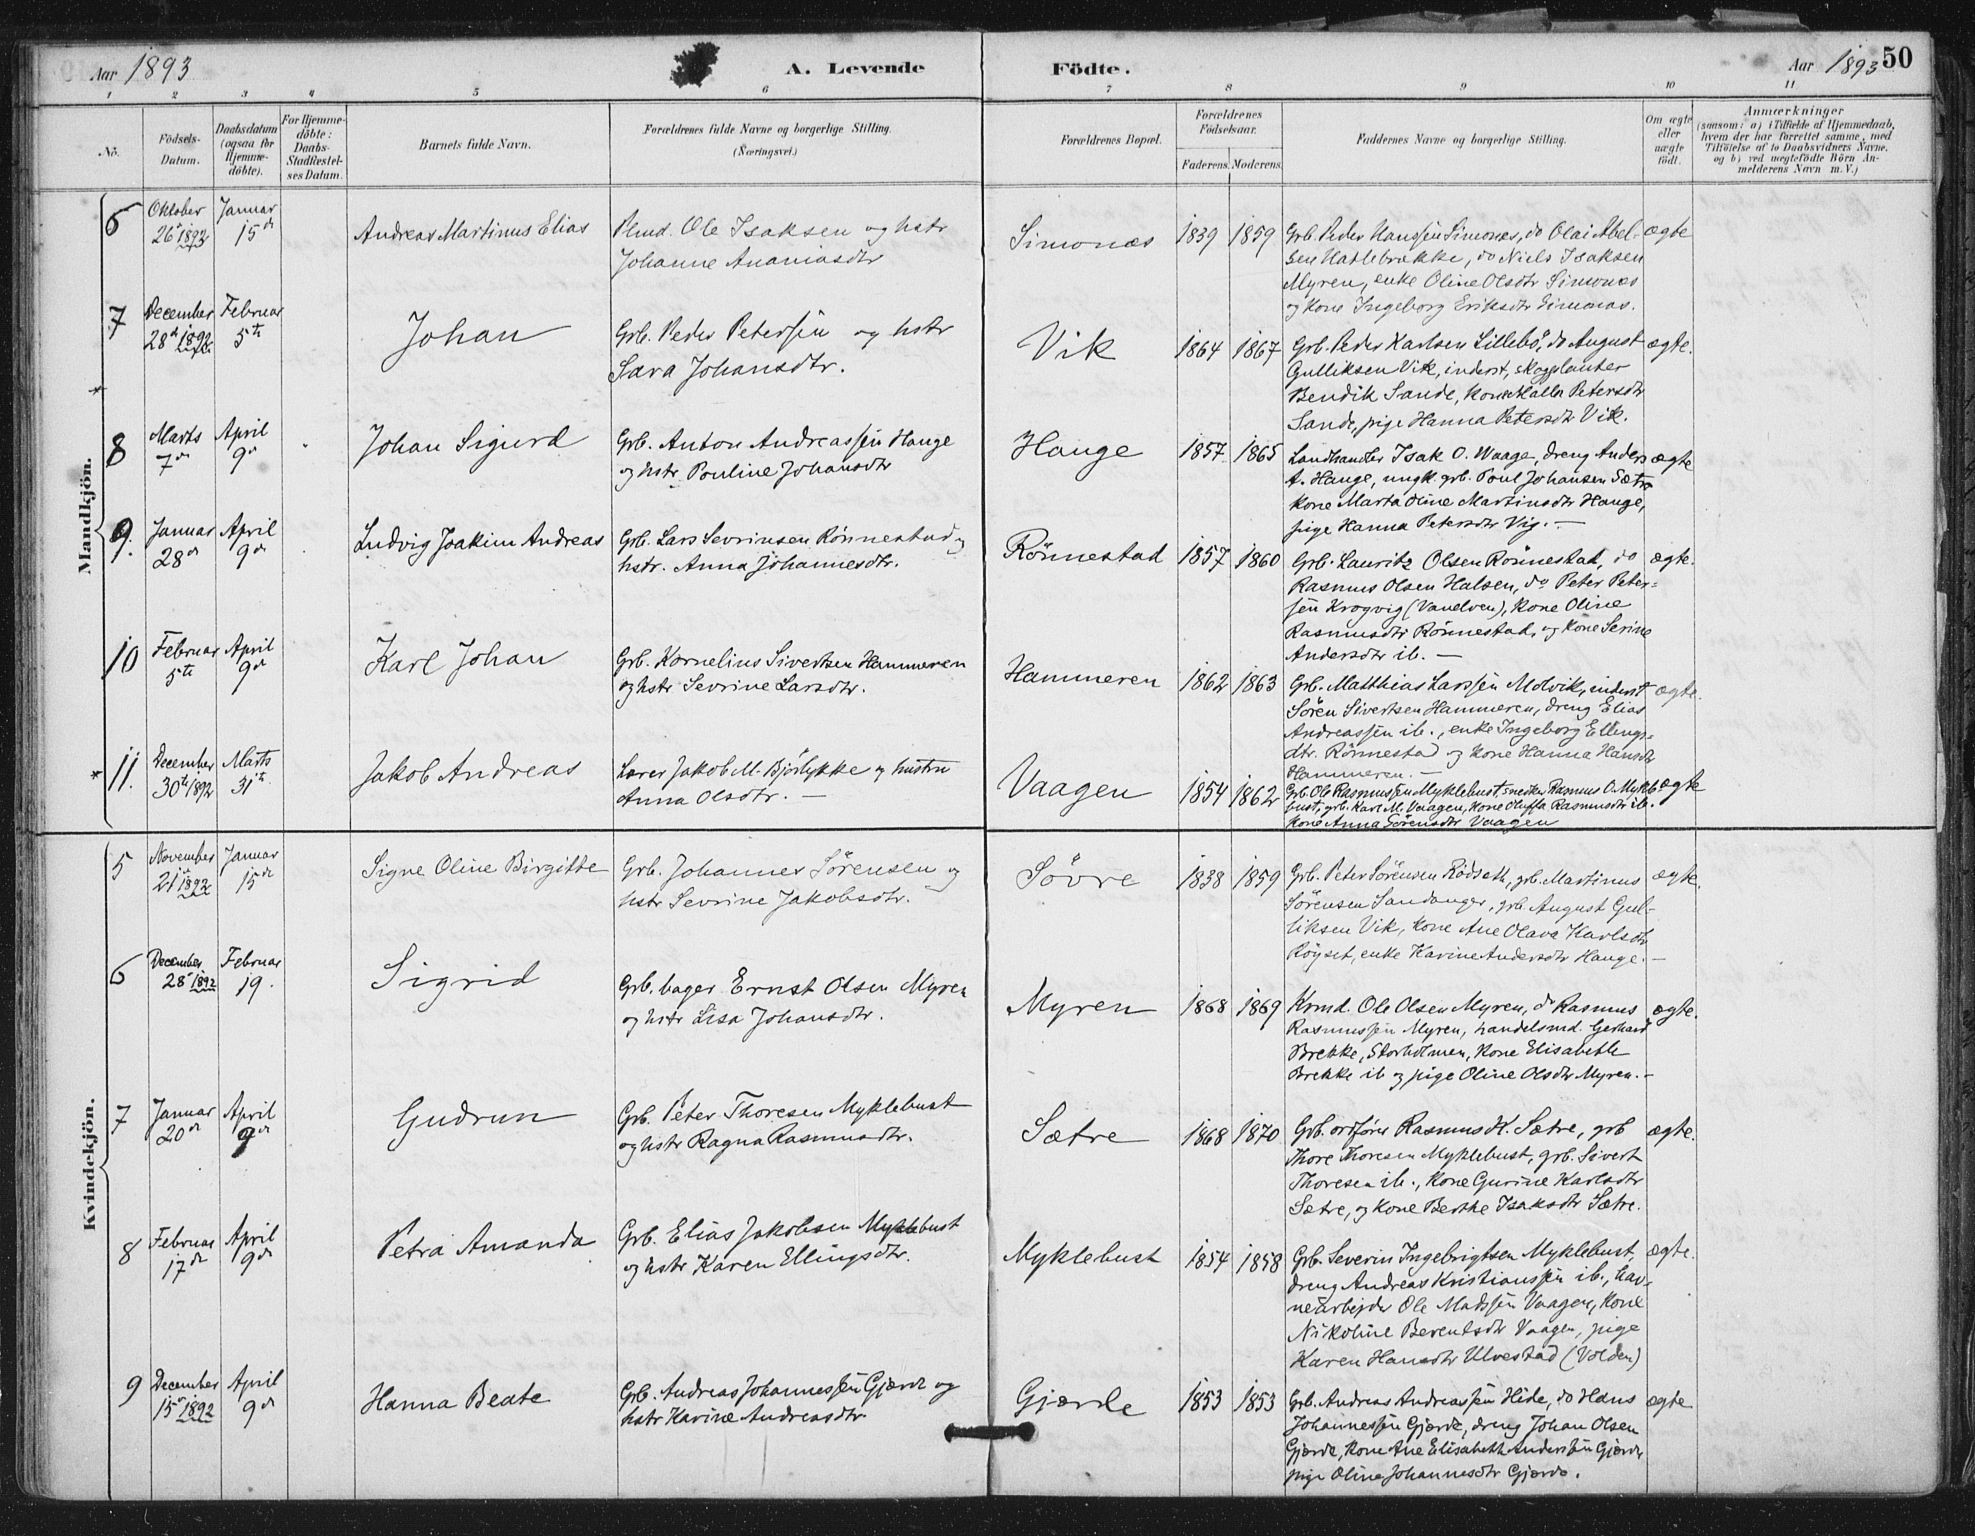 Aar 1893
A. Levende Födte.
Aar 1893 50
1 2 3 4 5 6 7 8 9 10 11
No.
Födsels-Datum.
Daabsdatum (ogsaa for Hjemme-döbte).
For Hjemme-döbte: Daabs-Stadfæstel-ses Datum.
Barnets fulde Navn.
Forældrenes fulde Navne og borgerlige Stilling. (Næringsvei.)
Forældrenes Bopæl.
Forældrenes Födselsaar.
Faderens. Moderens.
Faddernes Navne og borgerlige Stilling.
Om ægte eller uægte födt.
Anmærkninger
(saasom: a) i Tilfælde af Hjemmedaab,
hvem der har forrettet samme, med
Tilföielse af to Daabsvidners Navne,
og b) ved uægtefödte Börn An-
melderens Navn m. V.)
Mandkjön.
6 Oktober 26de 1892 Januar 15de Andreas Martinus Elias
Ole Isaksen og hstr
Johanne Ananiasdtr
Simonæs 1839 1859
Grb. Peder Hanssen Simonæs, do Olai Abel-
sen Hatlebrække, do Niels Isaksen
Myren, enke Oline Olsdtr Simonæs
og kone Ingeborg Eriksdtr Simonæs.
ægte
7 December 28de 1892 Februar 5te Johan
Grb. Peder Petersen og hstr
Sara Johansdtr.
Vik 1864 1867
Grb. Peder Karlsen Lillebö, do August
Gulliksen Vik, inderst, skogplanter
Bendik Sande, kone Petersdtr
Sande, pige Hanna Petersdtr Vik.
ægte.
8 Marts 7de April 9de Johan Sigurd
Grb. Anton Andreassen Hauge
og hstr Pouline Johansdtr
Hauge 1857 1865
Landhandler Isak O. Waage, dreng Anders
A. Hauge, ungk. grb. Poul Johansen Sætre
kone Marta Oline Martinsdtr Hauge,
pige Hanna Petersdtr Vig. —
ægte
9. Januar 28de April 9de Ludvig Joakim Andreas
Grb. Lars Sevrinsen Rönnestad og
hstr. Anna Johannesdtr.
Rönnestad 1857 1860
Grb. Lauritz Olsen Rönnestad, do
Rasmus Olsen Halsen, do Peter Peter-
sen Krogvig (Vanelven), kone Oline
Rasmusdtr Rönnestad, og kone Serine
Andersdtr ib. —
ægte.
10 Februar 5te April 9de Karl Johan
Grb. Kornelius Sivertsen Hammeren
og hstr Sevrine Larsdtr.
Hammeren 1862 1863
Grb. Matthias Larssen Molvik, inderst
Sören Sivertsen Hammeren, dreng Elias
Andreassen ib., enke Ingeborg Ellings-
dtr. Rönnestad og kone Hanna Hansdtr
Hammeren. —
ægte.
11. December 30te 1892 Marts 31te Jakob Andreas
Lærer Jakob M. Björlykke og hustru
Anna Olsdtr. —
Vaagen 1854 1862
Grb. Ole Rasmussen Myklebust, snedker Rasmus O. Mykle-
bust, grb. Karl M. Vaagen, kone Oluffa Rasmusdtr ib.
kone Anna Sörensdtr Vaagen
ægte
Kvindekjön.
5 November 21de 1892 Januar 15de Signe Oline Birgitte
Grb. Johannes Sörensen og
hstr Sevrine Jakobsdtr.
Sövre 1838 1859
Grb. Peter Sörensen Rödseth, grb. Martinus
Sörensen Sandanger, grb. August Gul-
liksen Vik, kone Ane Olava Karlsdtr
Röyset, enke Karine Andersdtr Hauge. —
ægte.
6 December 28de 1892 Februar 19. Sigrid
Grb. bager Ernst Olsen Myren
og hstr Lisa Johansdtr.
Myren 1868 1869
Krmd. Ole Olsen Myren, do Rasmus
Rasmussen Myren, handelsmd. Gerhard
Brekke, Storholmen, kone Elisabeth
Brekke ib og pige Oline Olsdtr Myren. —
ægte.
7 Januar 20de April 9de Gudrun
Grb. Peter Thoresen Myklebust
og hstr Ragna Rasmusdtr.
Sætre 1868 1870
Grb. ordförer Rasmus K. Sætre, grb
Thore Thoresen Myklebust, grb. Sivert
Thoresen ib., kone Gurine Karlsdtr
Sætre, og kone Berthe Isaksdtr Sætre.
ægte.
8 Februar 17de April 9de Petra Amanda
Grb. Elias Jakobsen Myklebust
og hstr Karen Ellingsdtr.
Myklebust 1854 1858
Grb. Severin Ingebrigtsen Myklebust,
dreng Andreas Kristianssen ib., hav-
nearbejder Ole Madssen Vaagen, kone
Nikoline Berentsdtr Vaagen, pige
Karen Hansdtr Ulvestad (Volden)
ægte.
9 December 15de 1892 April 9de Hanna Beate
Grb. Andreas Johannessen Gjærde og
hstr Karine Andreasdtr
Gjærde 1853 1853
Grb. Andreas Andreassen Hide, do Hans
Johannessen Gjærde, dreng Johan Olsen
Gjærde, kone Ane Elisabeth Anderssen Gjærde
pige Oline Johannesdtr Gjærde.
ægte